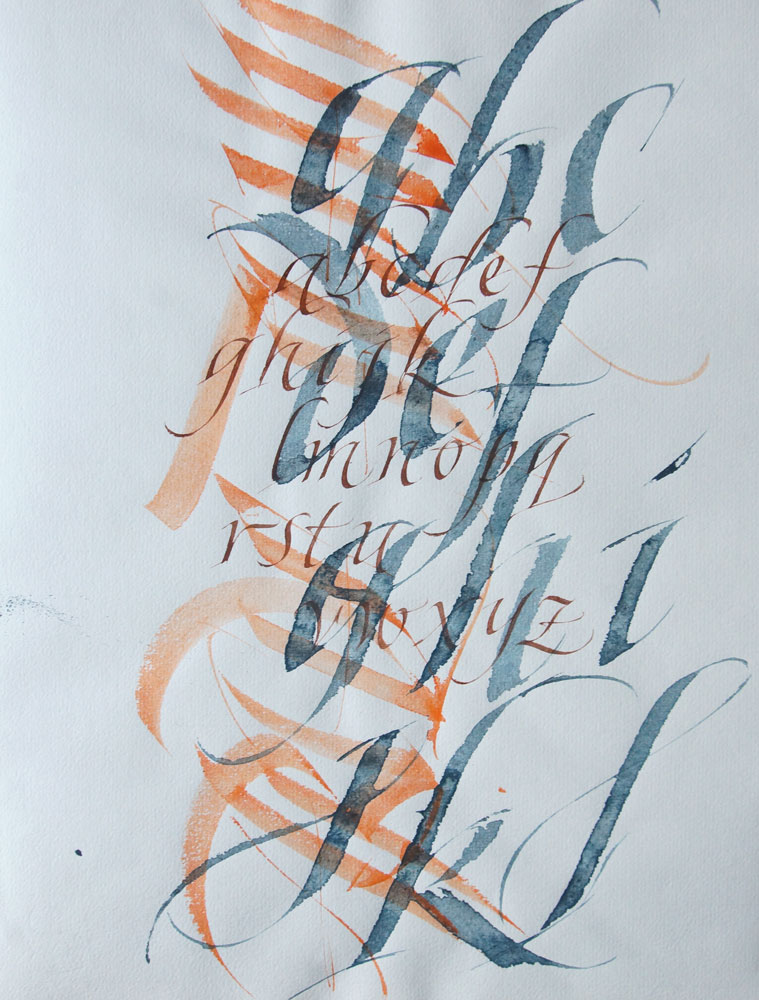 abc
abcdef
ghijk
def
lmnopq
rstu
ghi
vwxyz
jkl